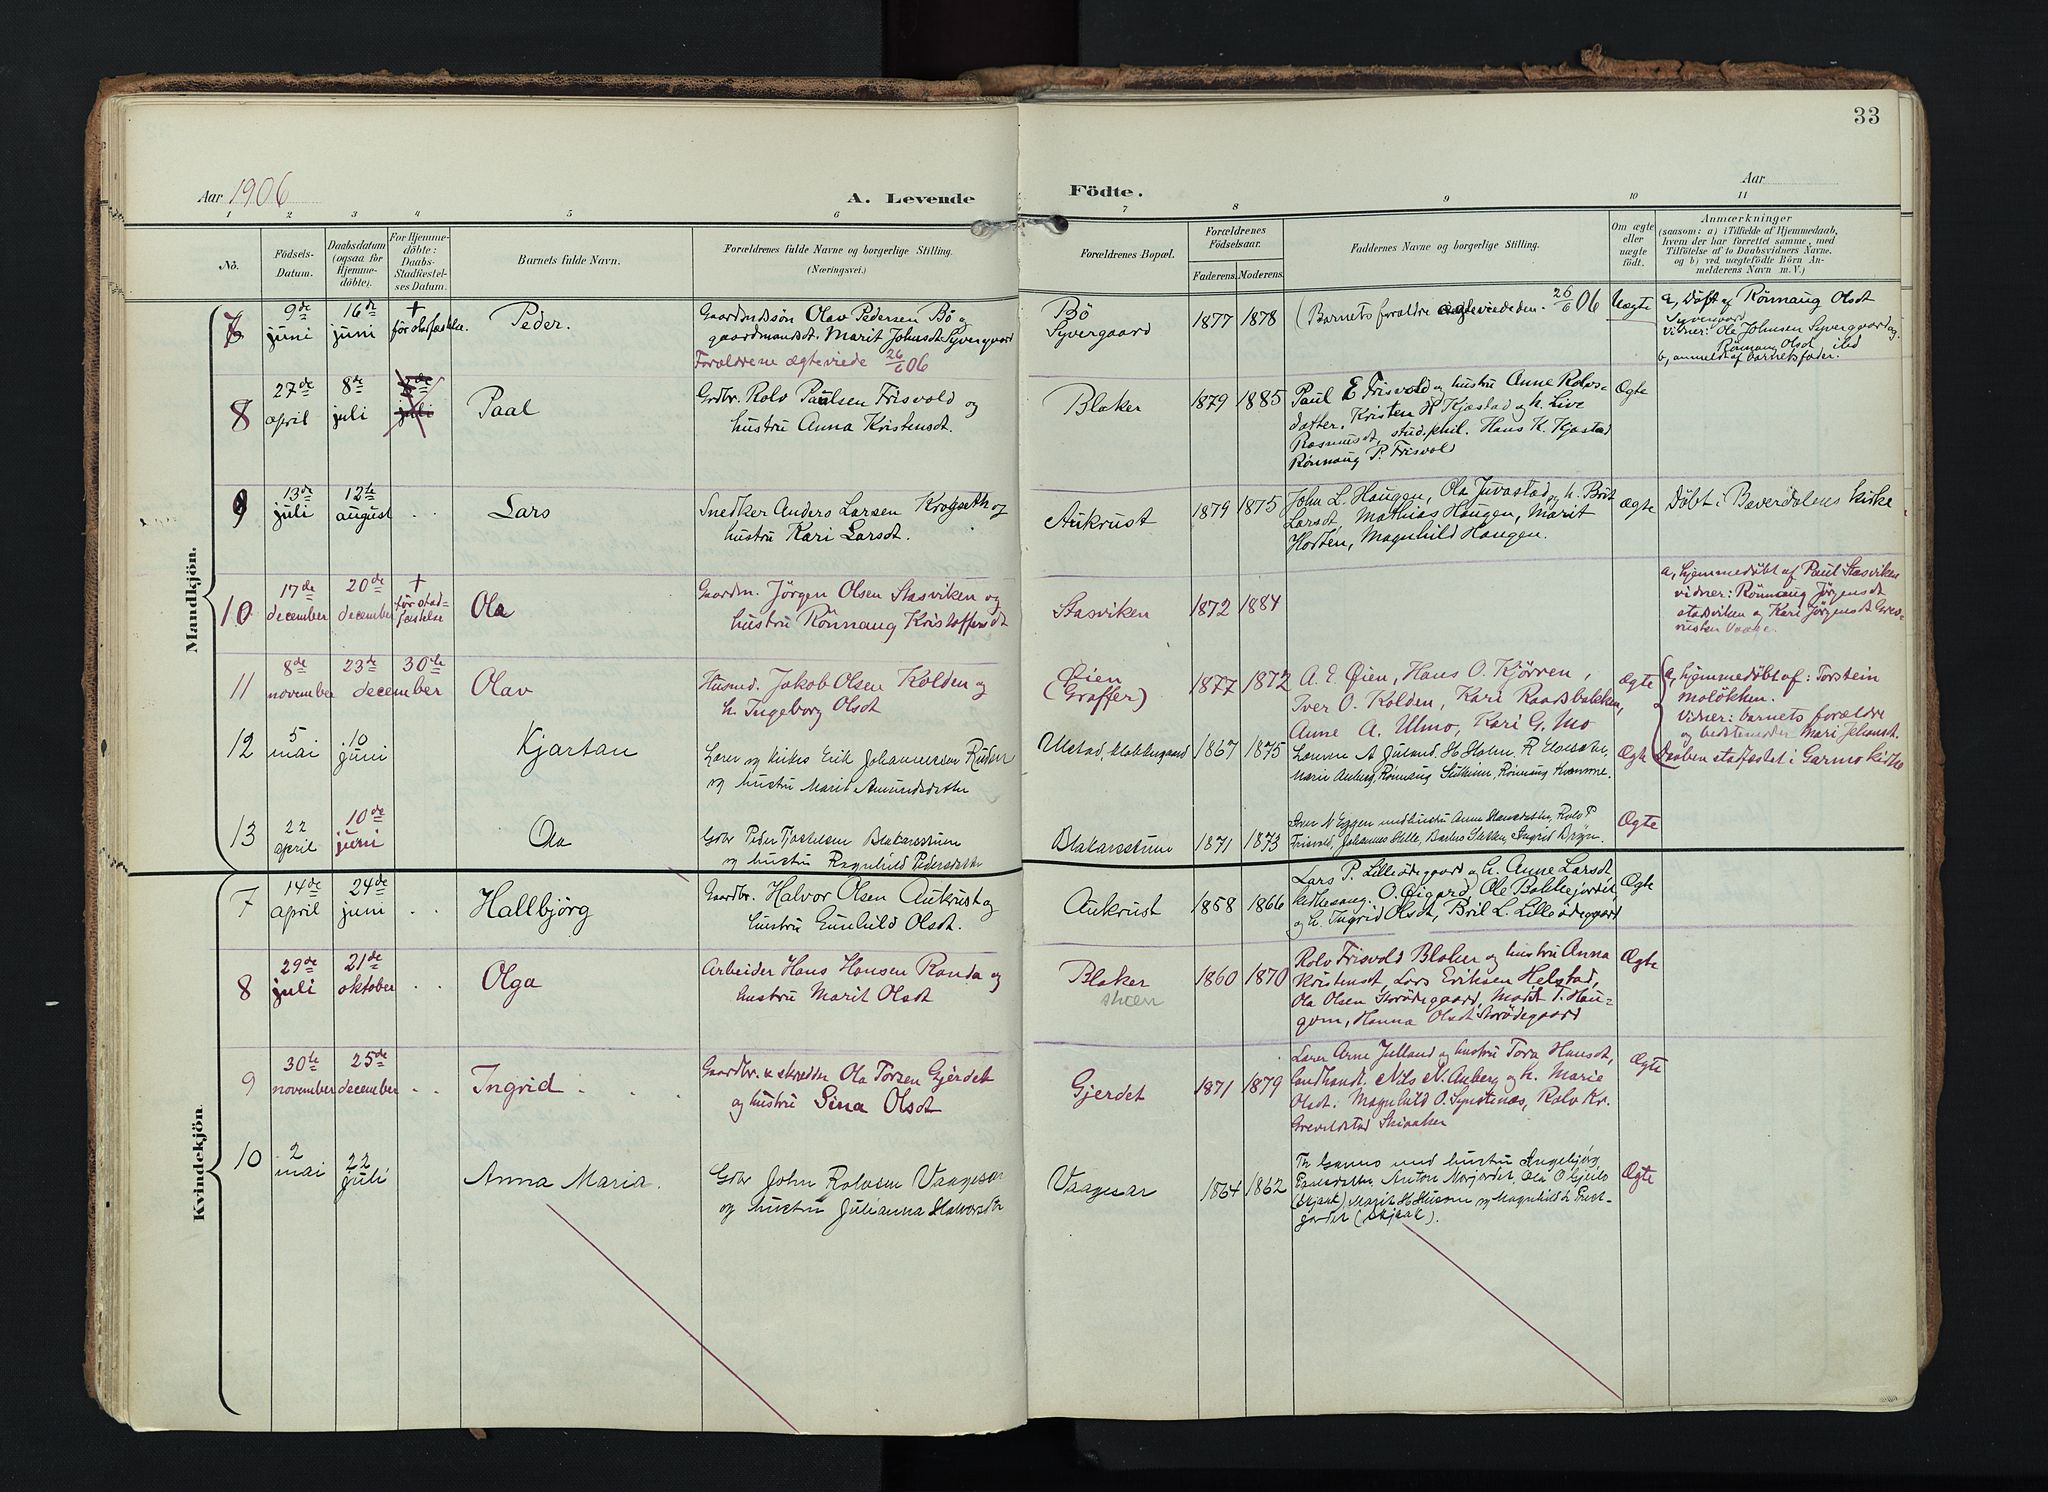 33
Aar 1906
A. Levende Födte.
Aar
1 2 3 4 5 6 7 8 9 10 11
Nö.
Födsels-Datum.
Daabsdatum (ogsaa for Hjemmedöbte).
For Hjemmedöbte: Daabs-Stadfæstelses Datum.
Barnets fulde Navn.
Forældrenes fulde Navne og borgerlige Stilling.
(Næringsvei.)
Forældrenes Bopæl.
Forældrenes Födselsaar.
Faderens. Moderens.
Faddernes Navne og borgerlige Stilling.
Om ægte eller uægte födt.
Anmærkninger
(saasom: a) i Tilfælde af Hjemmedaab,
hvem der har forrettet samme, med
Tilföielse af to Daabsvidners Navne.
og b) ved uægtefödte Börn Anmelderens Navn m. V.)
Mandkjön.
7 9de juni 16de juni † før stadfæstelse. Peder.
Gaardmandssøn Olav Pedersen Bö og
gaardmandsdt. Marit Johnsdt. Syvergaard
Forældrene ægteviede 26/6 06
Bö
Syvergaard
1877 1878 (Barnets forældre ægteviede den 26/6 06 Uægte
a, Döbt af Rönnaug Olsdt
Syvergaard
vidner: Ola Johnsen Syvergaard og
Rönnaug Olsdt ibid
b, anmeldt af barnets fader.
8 27de april 8de juli Paal
Grdbr. Rolv Paulsen Frisvold og
hustru Anna Kristensdt.
Blaker 1879 1885
Paul E Frisvold og hustru Anne Rolvs-
datter, Kristen H Kjæstad og h. Live
Rasmusdt, stud. phil. Hans K. Kjæstad
Rönnaug P. Frisvold
Ægte
9 13de juli 12te august . . Lars
Snedker Anders Larsen Krogseth og
hustru Kari Larsdt.
Aukrust 1879 1875
John L. Haugen, Ola Juvastad og h. Brit
Larsdt, Mathias Haugen, Marit
Horten, Magnhild Haugen.
Ægte Döbt i Bæverdalens kirke
10 17de december 20de december † för stadfæstelse Ola
Gaardm. Jörgen Olsen Stasviken og
hustru Rönnaug Kristoffersdt
Stasviken 1872 1884
a, hjemmedöbt af Paul Stasviken
vidner: Rönnaug Jörgensdt
Stasviken og Kari Jörgensdt
11 8de november 23de 30te december Olav
Husmd. Jakob Olsen Kolden og
h. Ingeborg Olsdt
Øien
(Graffer)
1877 1872
A. E. Øien, Hans O. Kjörren,
Iver O. Kolden, Kari Raadsbakken,
Anne A. Ulmo, Kari G. Mo
Ægte
a, hjemmedöbt af: Torstein
Molökken.
vidner: barnets forældre
og bedstemoder Mari Johansdt.
Daaben stadfæstet i Garmo kirke
12 5 mai 10 juni Kjartan
Lærer og kirkes. Erik Johannessen Ruden
og hustru Marit Amundsdatter
Ulstad, klokkergaard 1867 1875
Ægte
13 22 april 10de juni Ola
Gdbr Peder Tjostelsen Blakarstrium
og hustru Ragnhild Pedersdatter
1871 1873
Iver N Eggen med hustru Anne Hansdatter, Rolv P
Frisvold, Johannes
Ægte
Kvindekjön.
7 14de april 24de juni . . Hallbjörg
Gaardbr. Halvor Olsen Aukrust og
hustru Gunhild Olsdt.
Aukrust 1858 1866
Lars P. Lilleödegaard og h. Anne Larsdt,
kirkesang. O. Øigard, Ole Bakkejordet
og h. Ingrid Olsdt, Brit L. Lilleödegaard
Ægte
8 29de juli 21de oktober . . Olga
Arbeider Hans Hansen Randa og
hustru Marit Olsdt
Blaker
1860 1870
Rolv Frisvold Blaker og hustru Anna
Kristensdt, Lars Eriksen Helstad,
Ola Olsen Storödegaard, Marit T. Hau-
gom, Hanna Olsdt Storödegaard
Ægte
9 30te november 25de december . . Ingrid
Gaardbr. & skrædder Ola Torsen Gjerdet
og hustru Sina Olsdt
Gjerdet 1871 1879
Lærer Arne Julland og hustru Tora Hansdt,
landhandl. Nils N. Auberg og h. Marie
Olsdt. Magnhild O. Synstnæs, Rolv Kr.
Grevildstad Skiaaker
Ægte
10 2 mai 22 juli Anna Maria.
Gdbr John Rolvsen Vaagesar
og hustru Julianna Halvorsdtr
Vaagesar 1864 1862
Th Garmo med hustru Ingebjørg
Anton Norjordet, Ola O
(Skjaak) Marit H og Magnhild
(Skjaak).
Ægte